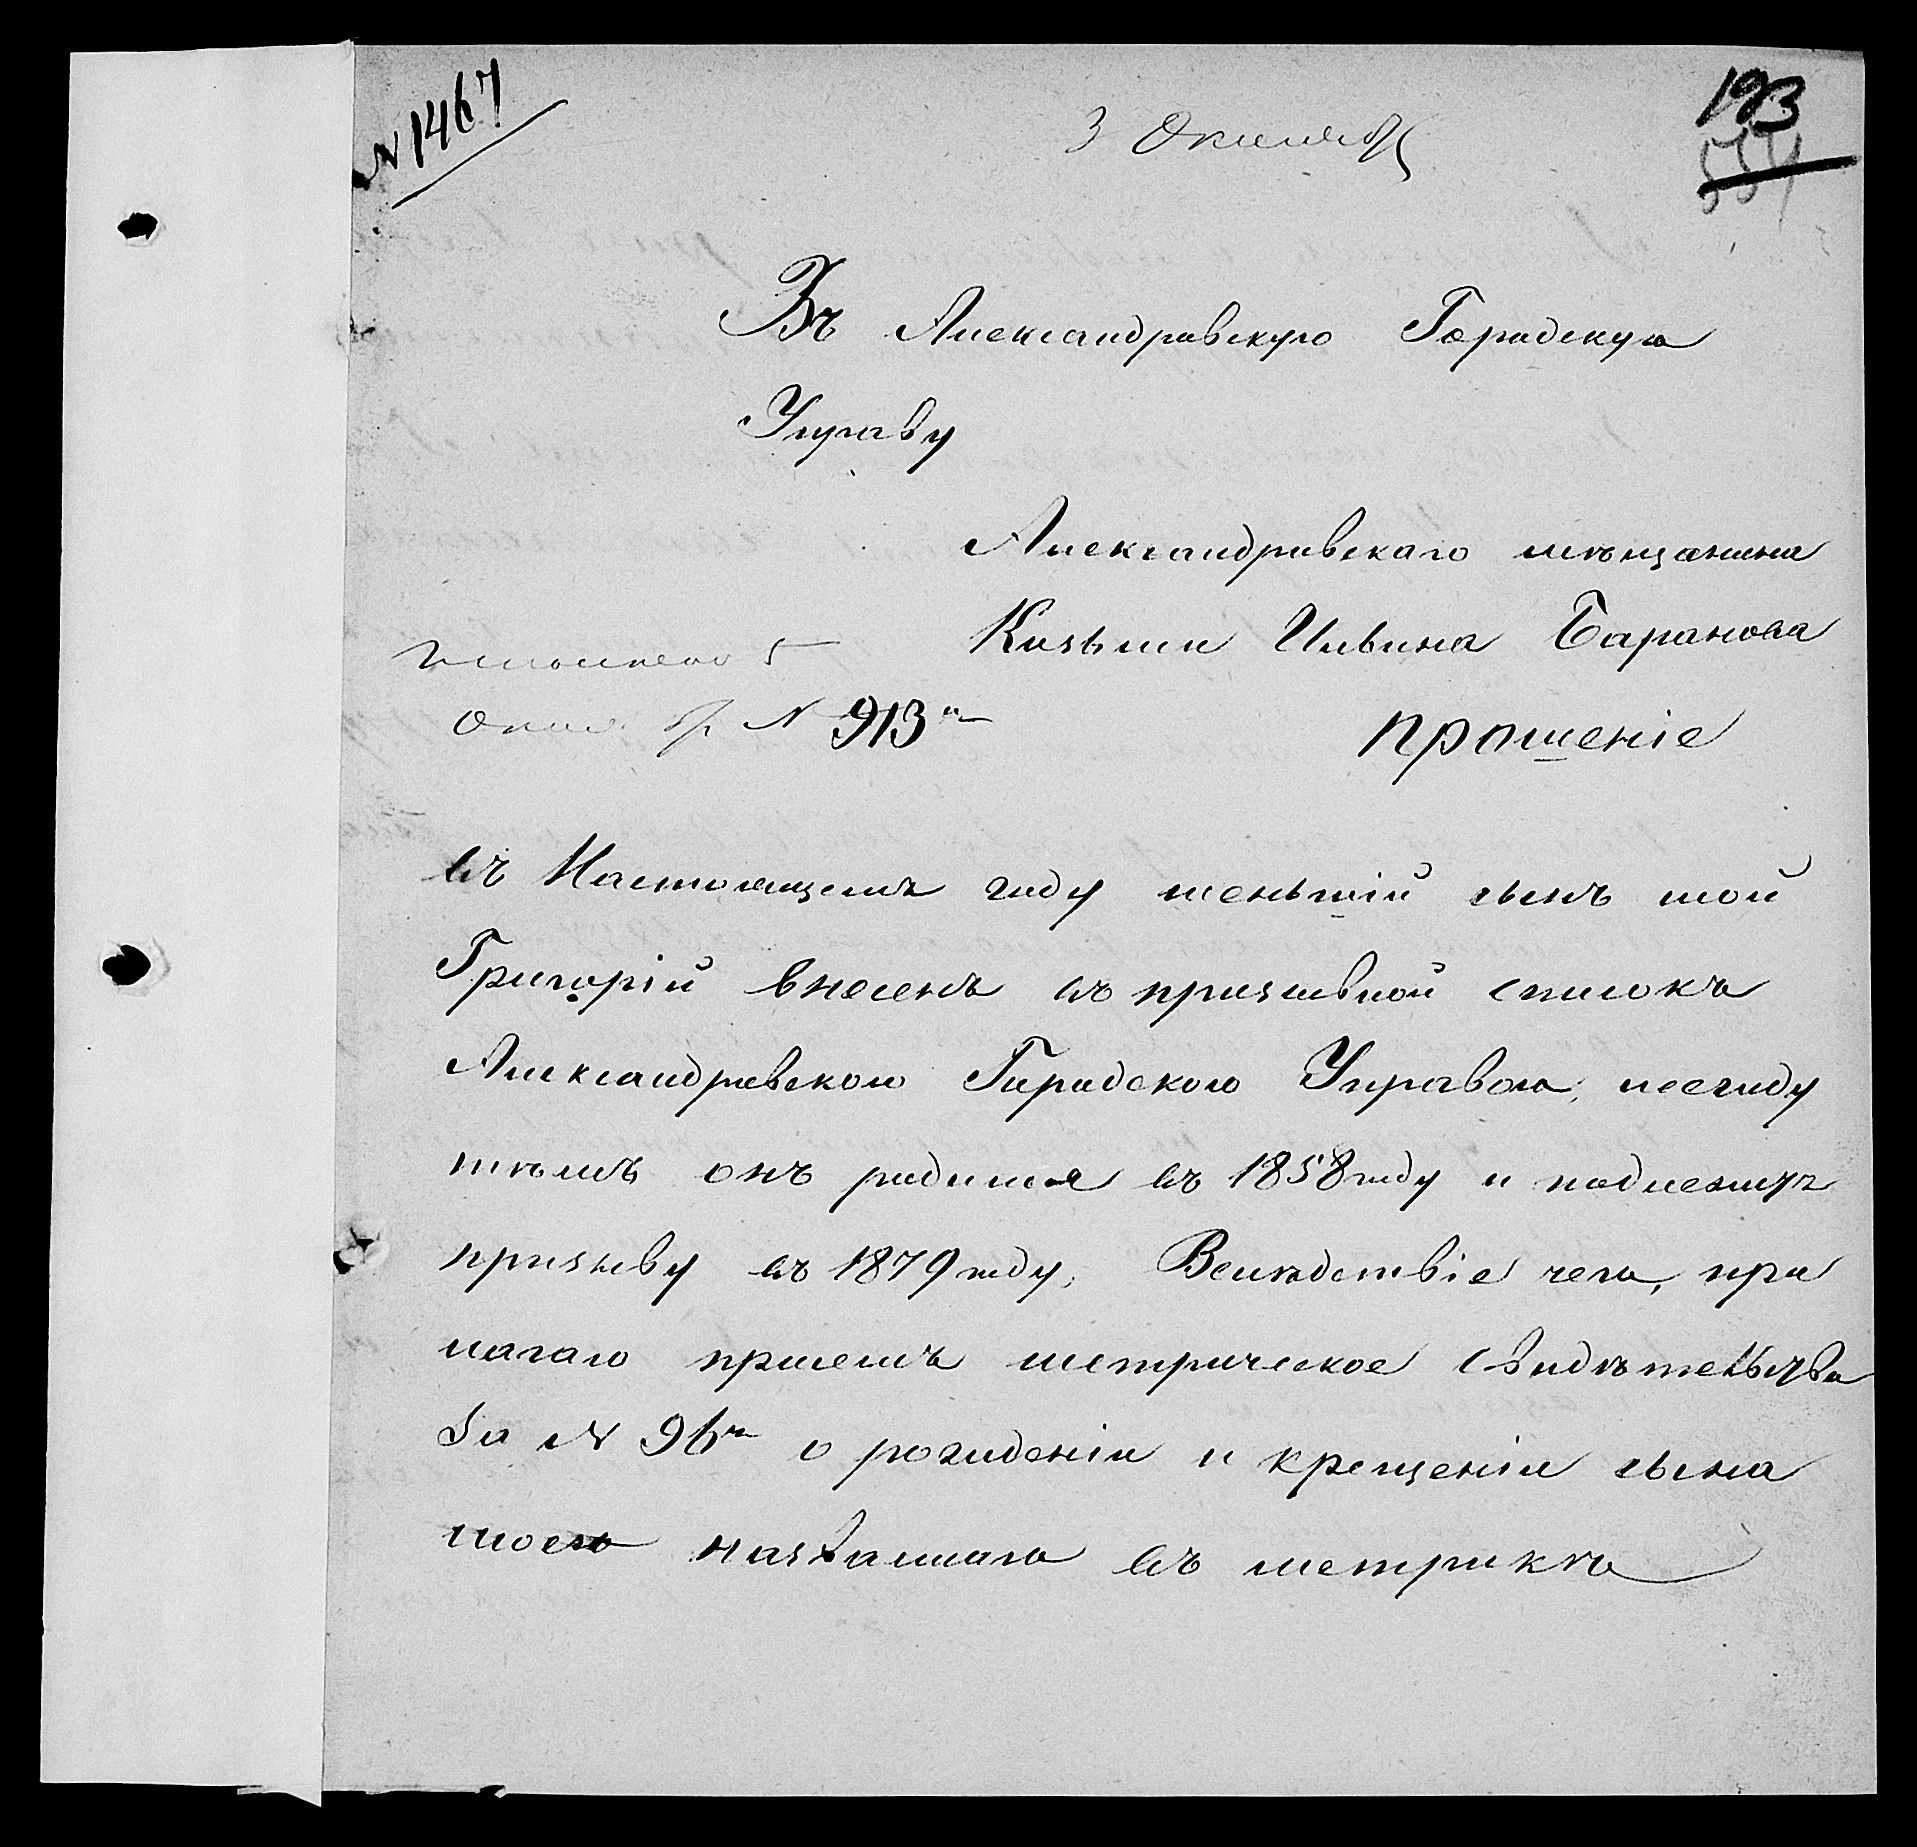 N 1467
3 Октября
193
554
Въ Александровскую Городскую
Управу
Александровскаго мѣщанина
Козьми Ильина Баранова
Исполнено 5
Октября N 913
прошеніе
въ Настоящемъ году меньшій сынъ мой
Григорій внесенъ въ призывной списокъ
Александровскою Городскою Управою, между
тѣмъ онъ родился въ 1858 году и подлежитъ
призыву въ 1879 году, Вслѣдствіе чего, при
лагаю присемъ метрическое свидѣтельство
За N 96 о рожденіи и крещеніи сына
моего названнаго въ метрикѣ